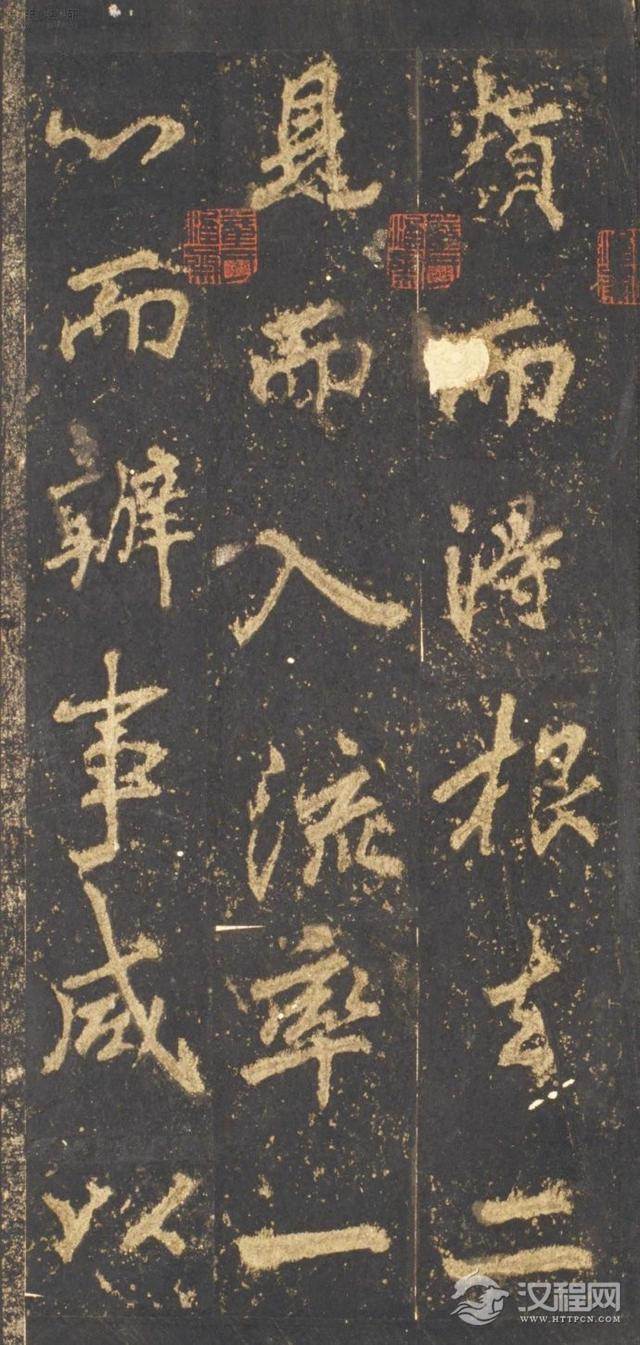 而得根去二
見而入流率一
心而辨事咸以
汉程网
WWW.HTTPCN.COM